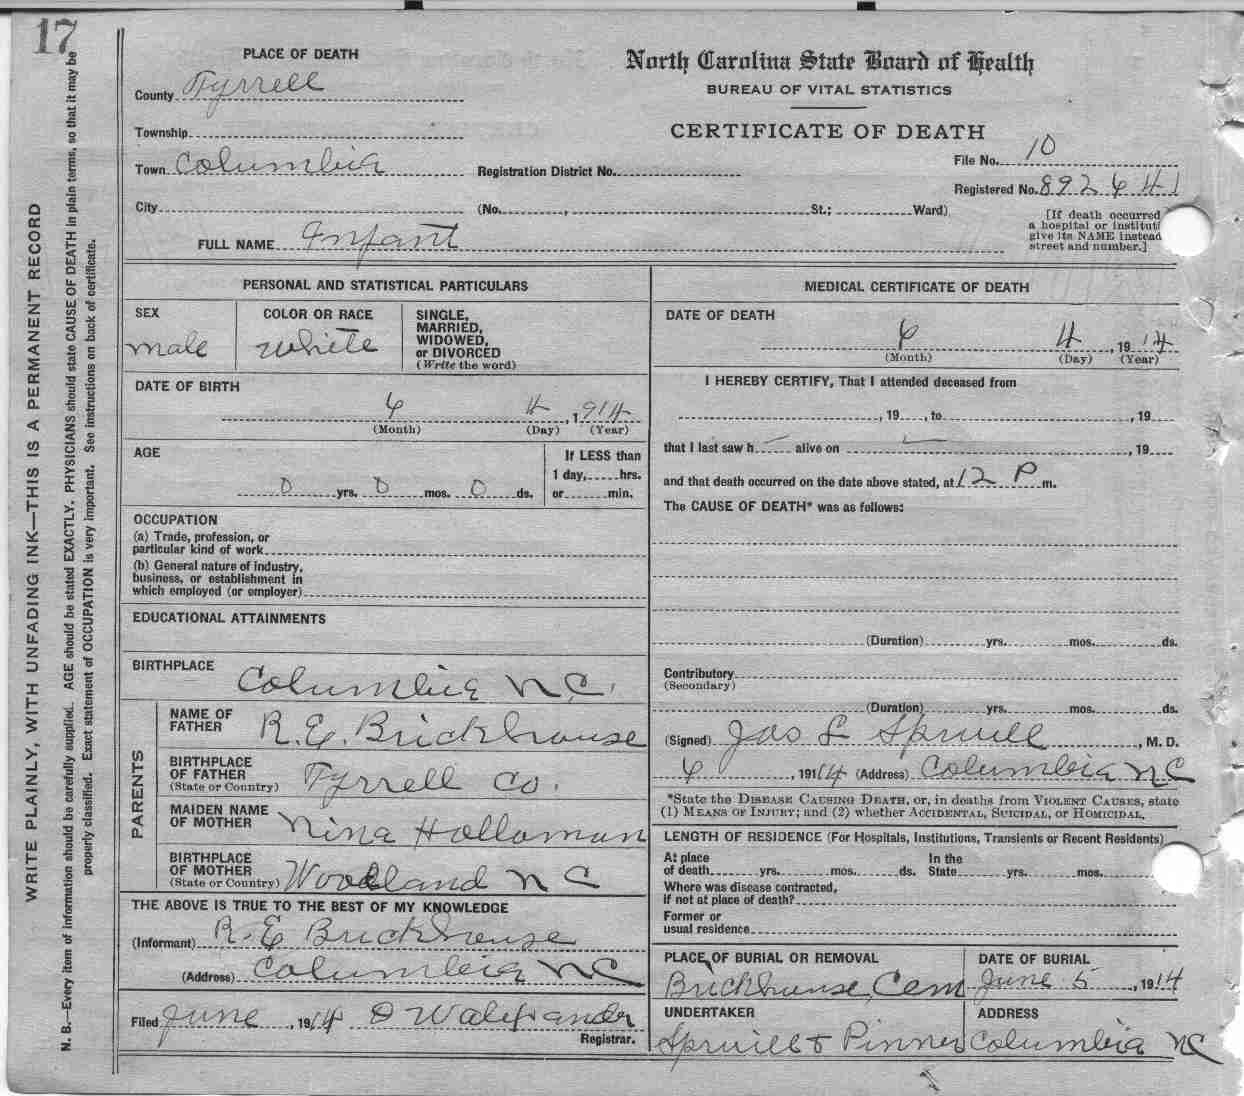 17
WRITE PLAINLY, WITH UNFADING INK—THIS IS A PERMANENT RECORD
N. B.—Every item of information should be carefully supplied. AGE should be stated EXACTLY. PHYSICIANS should state CAUSE OF DEATH in plain terms, so that it may be
properly classified. Exact statement of OCCUPATION is very important. See instructions on back of certificate.
PLACE OF DEATH
County Tyrrell
Township
Town Columbia
City
North Carolina State Board of Health
BUREAU OF VITAL STATISTICS
CERTIFICATE OF DEATH
Registration District No.
File No. 10
Registered No. 892 6 4 1
(No. , St.; Ward)
[If death occurred
a hospital or institut
give its NAME instead
street and number.]
FULL NAME Infant
PERSONAL AND STATISTICAL PARTICULARS
SEX
male
COLOR OR RACE
White
SINGLE,
MARRIED,
WIDOWED,
or DIVORCED
(Write the word)
DATE OF BIRTH
6 4, 1914
(Month) (Day) (Year)
AGE
0 yrs. 0 mos. 0 ds.
If LESS than
1 day, hrs.
or min.
OCCUPATION
(a) Trade, profession, or
particular kind of work
(b) General nature of industry,
business, or establishment in
which employed (or employer)
EDUCATIONAL ATTAINMENTS
BIRTHPLACE Columbia N.C.
PARENTS
NAME OF
FATHER R.E. Brickhouse
BIRTHPLACE
OF FATHER
(State or Country) Tyrrell Co.
MAIDEN NAME
OF MOTHER Nina Holloman
BIRTHPLACE
OF MOTHER
(State or Country) Woodland N C
THE ABOVE IS TRUE TO THE BEST OF MY KNOWLEDGE
(Informant) R.E Brickhouse
(Address) Columbia NC
Filed June, 1914 D W
Registrar.
MEDICAL CERTIFICATE OF DEATH
DATE OF DEATH
6 4, 1914
(Month) (Day) (Year)
I HEREBY CERTIFY, That I attended deceased from
, 19 , to , 19
that I last saw h alive on , 19
and that death occurred on the date above stated, at 12 P m.
The CAUSE OF DEATH* was as follows:
(Duration) yrs. mos. ds.
Contributory
(Secondary)
(Duration) yrs. mos. ds.
(Signed) Jas L Spruill, M. D.
6 , 1914 (Address) Columbia NC
*State the DISEASE CAUSING DEATH, or, in deaths from VIOLENT CAUSES, state
(1) MEANS OF INJURY; and (2) whether ACCIDENTAL, SUICIDAL, or HOMICIDAL.
LENGTH OF RESIDENCE (For Hospitals, Institutions, Transients or Recent Residents)
At place
of death yrs. mos. ds.
In the
State yrs. mos.
Where was disease contracted,
if not at place of death?
Former or
usual residence
PLACE OF BURIAL OR REMOVAL
Brickhouse Cem
DATE OF BURIAL
June 5, 1914
UNDERTAKER
Spruill & Pinner
ADDRESS
Columbia NC